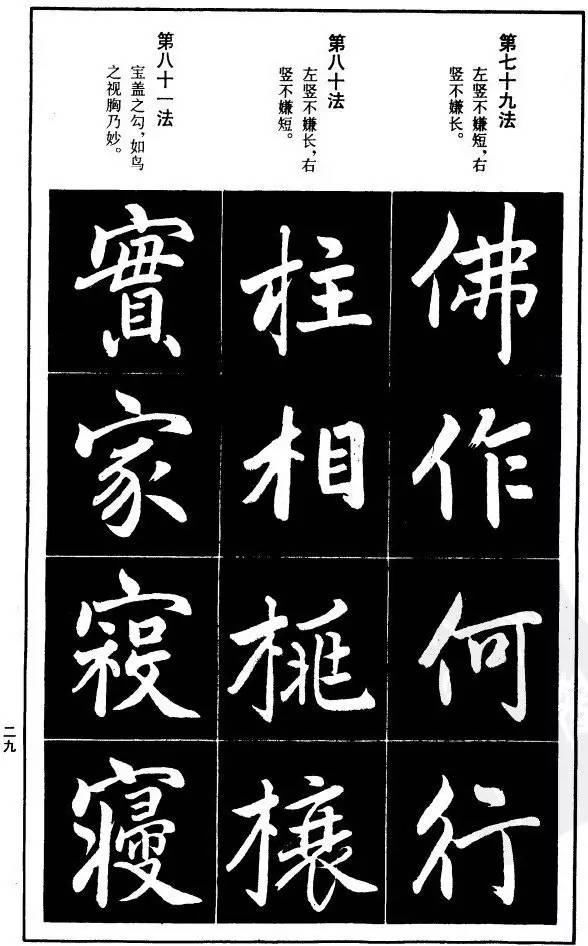 第七十九法
左竖不嫌短,右
竖不嫌长。
佛
作
何
行
第八十法
左竖不嫌长,右
竖不嫌短。
柱
相
桃
欀
第八十一法
宝盖之勾,如鸟
之视胸乃妙。
實
家
寝
寢
二九